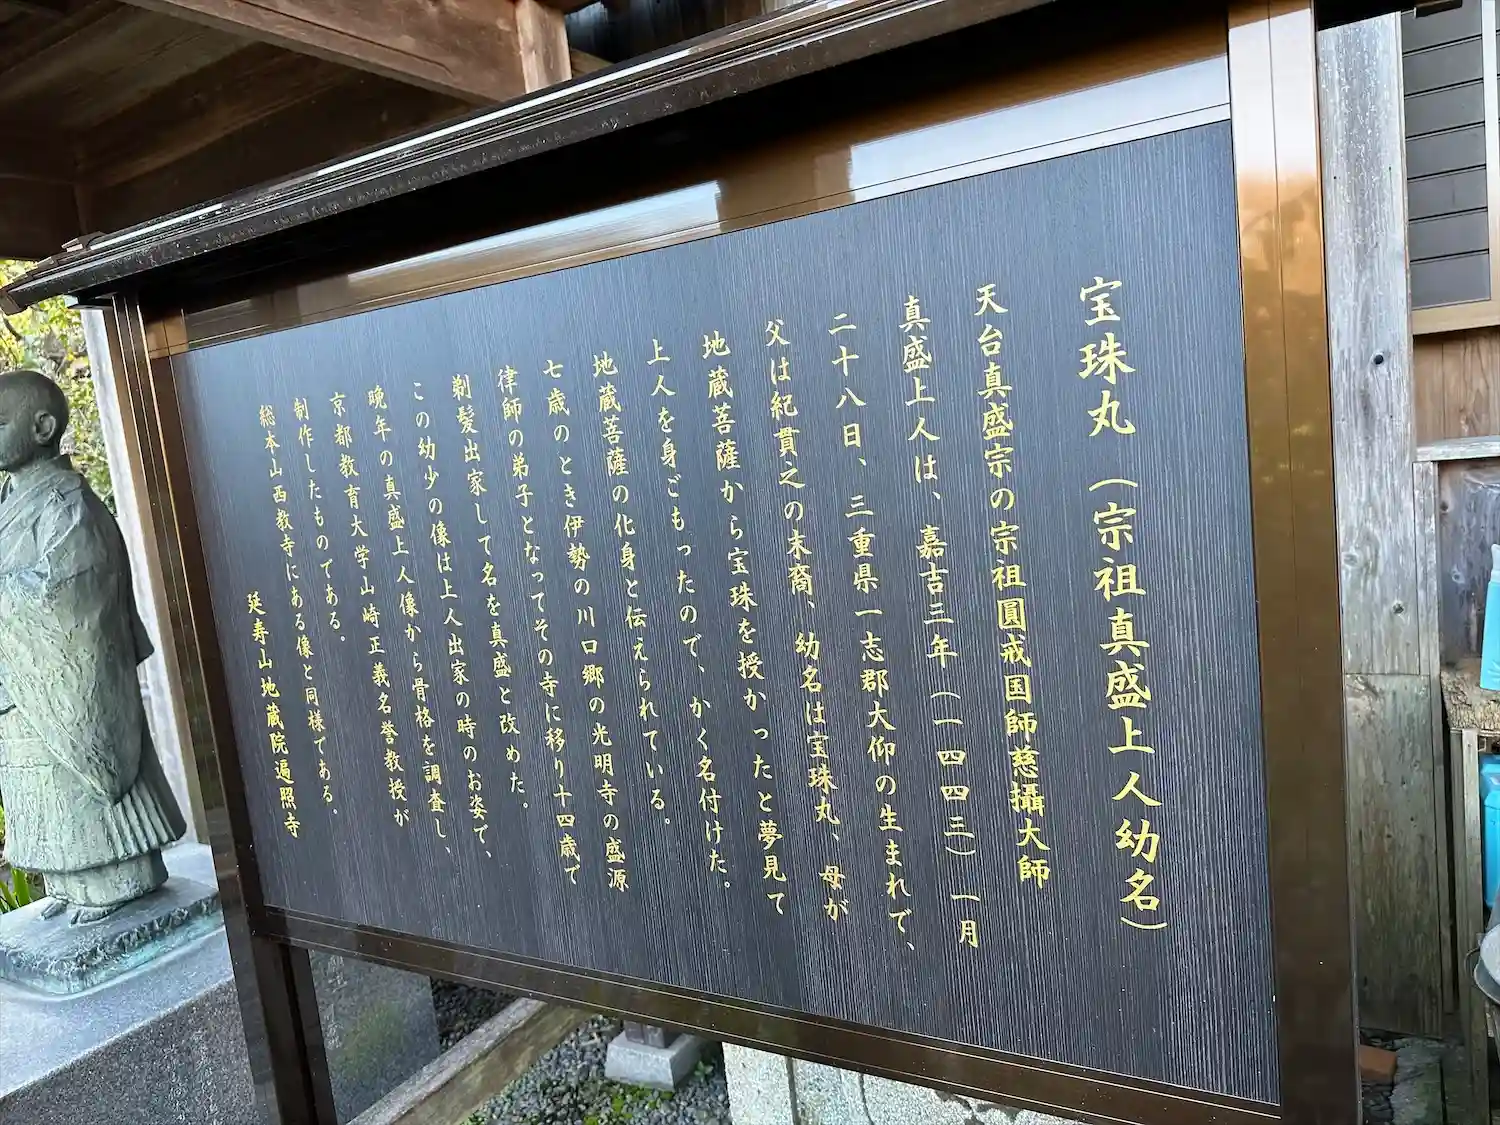 宝珠丸（宗祖真盛上人幼名）
天台真盛宗の宗祖圓戒国師慈攝大師
真盛上人は、嘉吉三年（一四四三）一月
二十八日、三重県一志郡大仰の生まれで、
父は紀貫之の末裔、幼名は宝珠丸、母が
地蔵菩薩から宝珠を授かったと夢見て
上人を身ごもったので、かく名付けた。
地蔵菩薩の化身と伝えられている。
七歳のとき伊勢の川口郷の光明寺の盛源
律師の弟子となってその寺に移り十四歳で
剃髪出家して名を真盛と改めた。
この幼少の像は上人出家の時のお姿で、
晩年の真盛上人像から骨格を調査し、
京都教育大学山崎正義名誉教授が
制作したものである。
総本山西教寺にある像と同様である。
延寿山地蔵院遍照寺